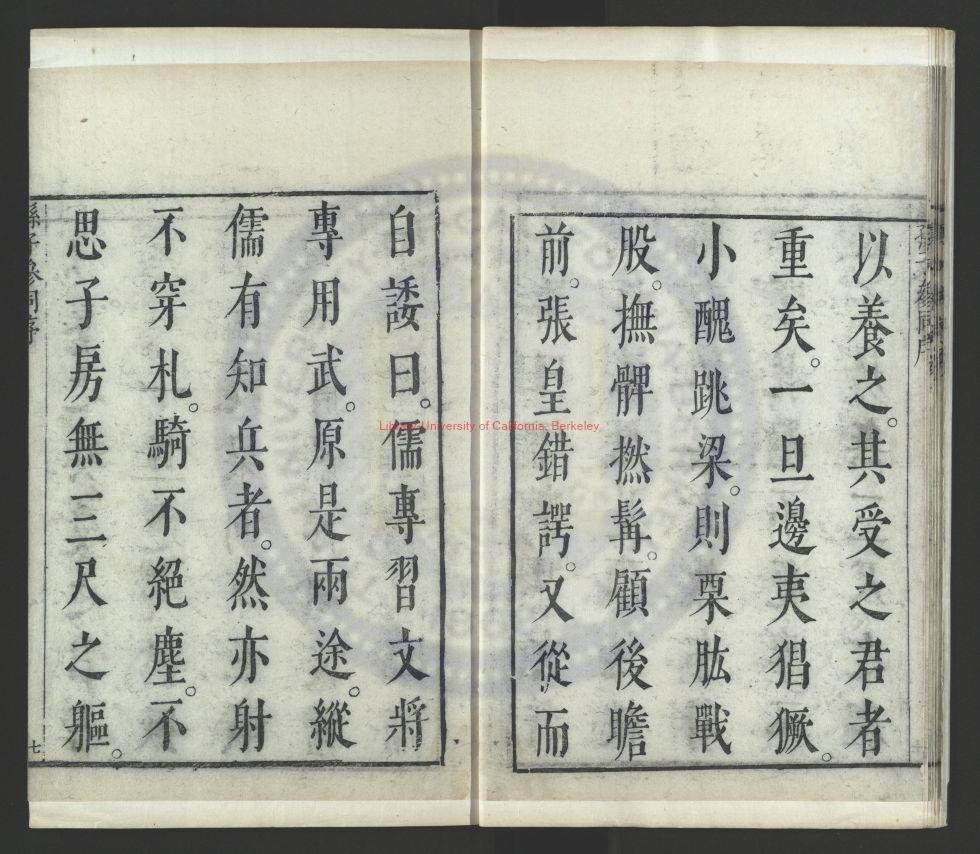 以養之。其受之君者
重矣。一旦邊夷猖獗。
小醜跳梁。則栗肱戰
股。撫髀撚髯。顧後瞻
前。張皇錯諤。又從而
自諉曰。儒專習文將
專用武。原是兩途。縱
儒有知兵者。然亦射
不穿札。騎不絕塵。不
思子房無三尺之軀。
孫子參同序
七
Library, University of California, Berkeley